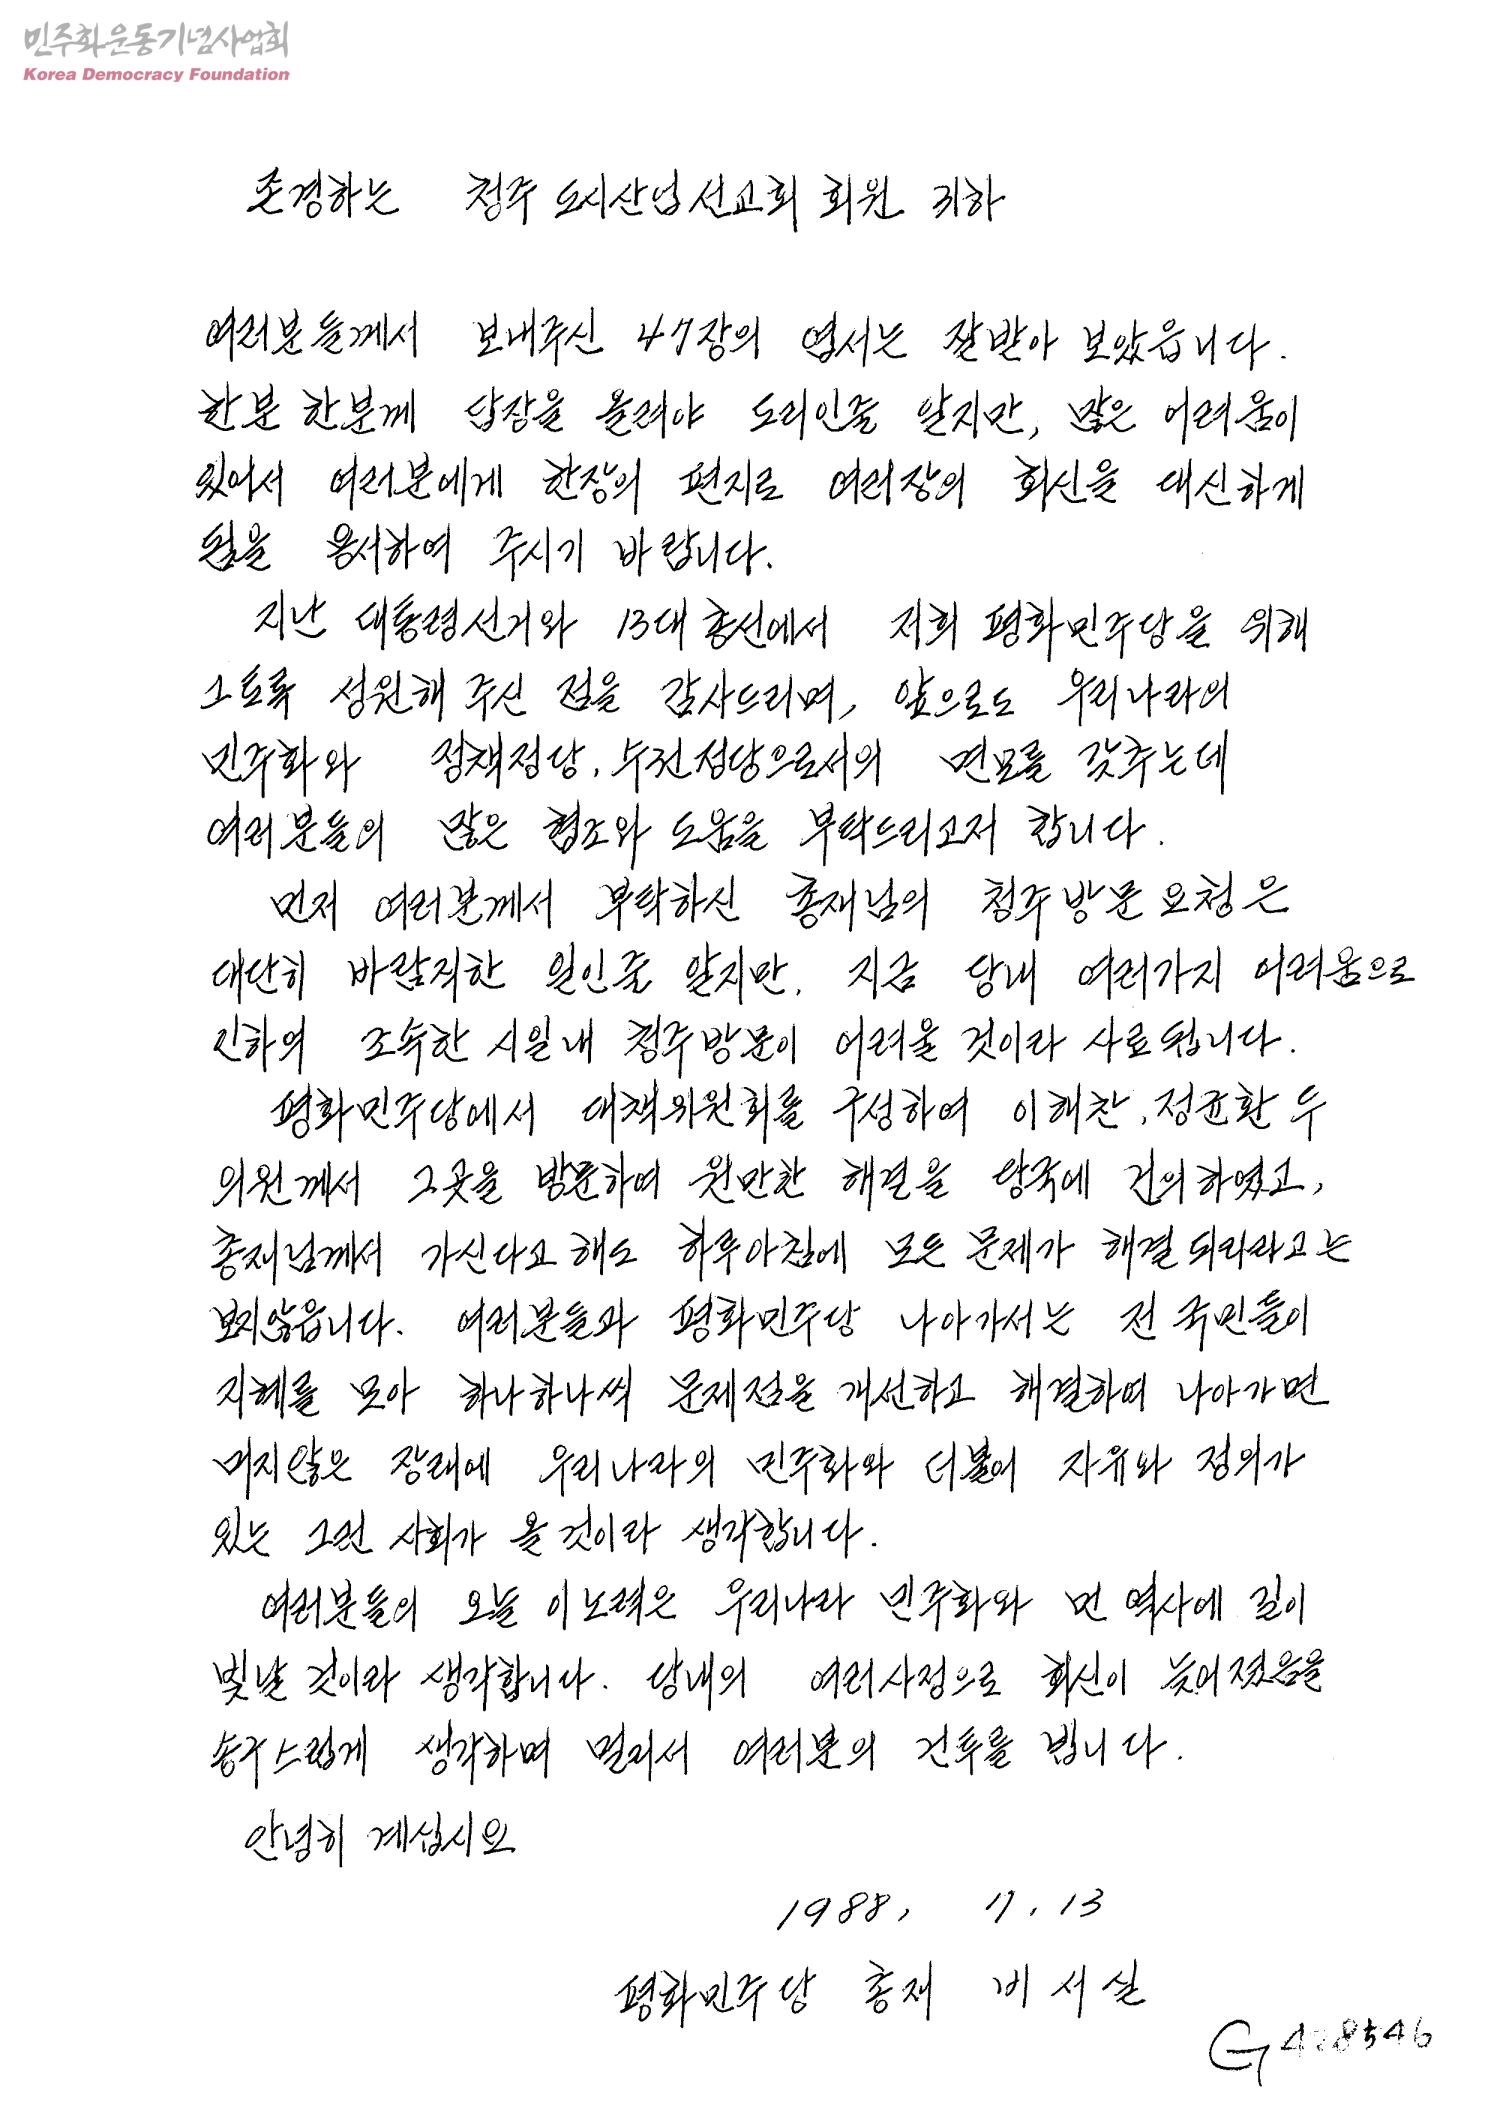 민주화운동기념사업회
Korea Democracy Foundation
존경하는 청주 도시산업선교회 회원 귀하
여러분들께서 보내주신 47장의 엽서는 잘받아 보았읍니다.
한분 한분께 답장을 올려야 도리인줄 알지만, 많은 어려움이
있어서 여러분에게 한장의 편지로 여러장의 회신을 대신하게
됨을 용서하여 주시기 바랍니다.
지난 대통령선거와 13대 총선에서 저희 평화민주당을 위해
그토록 성원해 주신 점을 감사드리며, 앞으로도 우리나라의
민주화와 정책정당, 수권정당으로서의 면모를 갖추는데
여러분들의 많은 협조와 도움을 부탁드리고저 합니다.
먼저 여러분께서 부탁하신 총재님의 청주방문 요청은
대단히 바람직한 일인줄 알지만, 지금 당내 여러가지 어려움으로
인하여 조속한 시일내 청주방문이 어려울 것이라 사료됩니다.
평화민주당에서 대책위원회를 구성하여 이해찬, 정균환 두
의원께서 그곳을 방문하여 원만한 해결을 당국에 건의하였고,
총재님께서 가신다고 해도 하루아침에 모든 문제가 해결되리라고는
보지않읍니다. 여러분들과 평화민주당 나아가서는 전 국민들이
지혜를 모아 하나하나씩 문제점을 개선하고 해결하여 나아가면
머지않은 장래에 우리나라의 민주화와 더불어 자유와 정의가
있는 그런 사회가 올 것이라 생각합니다.
여러분들의 오늘 이 노력은 우리나라 민주화와 먼 역사에 길이
빛날 것이라 생각합니다. 당내의 여러사정으로 회신이 늦어졌음을
송구스럽게 생각하며 멀리서 여러분의 건투를 빕니다.
안녕히 계십시요
1988, 7. 13
평화민주당 총재 비서실